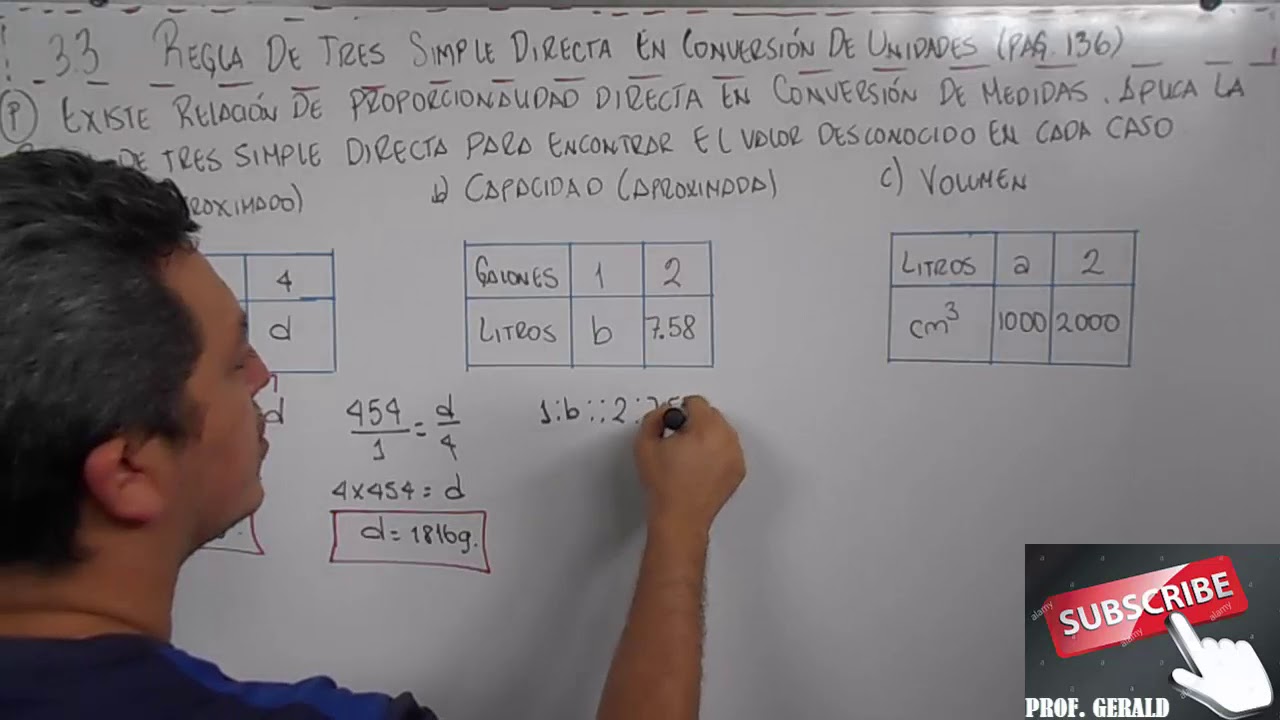 3.3 REGLA DE TRES SIMPLE DIRECTA EN CONVERSIÓN DE UNIDADES (PAG. 136)
P EXISTE RELACIÓN DE PROPORCIONALIDAD DIRECTA EN CONVERSIÓN DE MEDIDAS. APLICA LA
DE TRES SIMPLE DIRECTA PARA ENCONTRAR EL VALOR DESCONOCIDO EN CADA CASO
b) CAPACIDAD (APROXIMADA) c) VOLUMEN
4
d
GALONES 1 2
LITROS b 7.58
LITROS a 2
cm³ 1000 2000
d
454/1 = d/4
4x454 = d
d = 1816g.
1:b::2:
SUBSCRIBE
alamy
alamy
PROF. GERALD